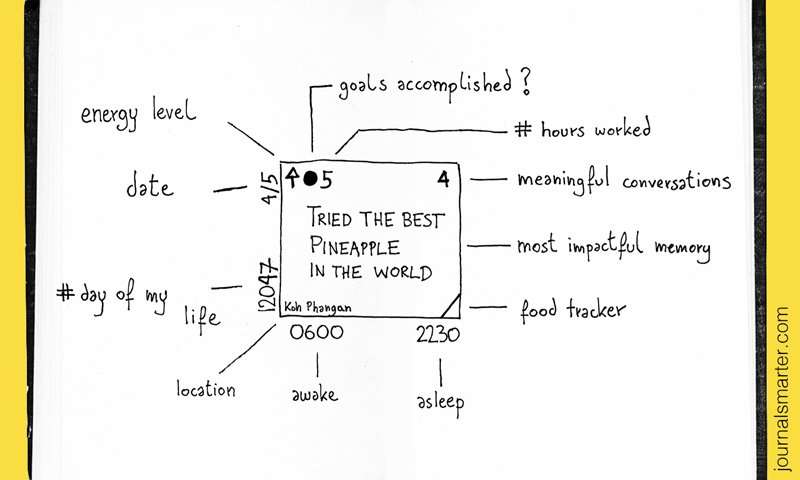 goals accomplished?
energy level
# hours worked
date
4/5
5
4
meaningful conversations
TRIED THE BEST
PINEAPPLE
IN THE WORLD
most impactful memory
# day of my
life
12047
Koh Phangan
food tracker
0600
2230
location
awake
asleep
journalsmarter.com